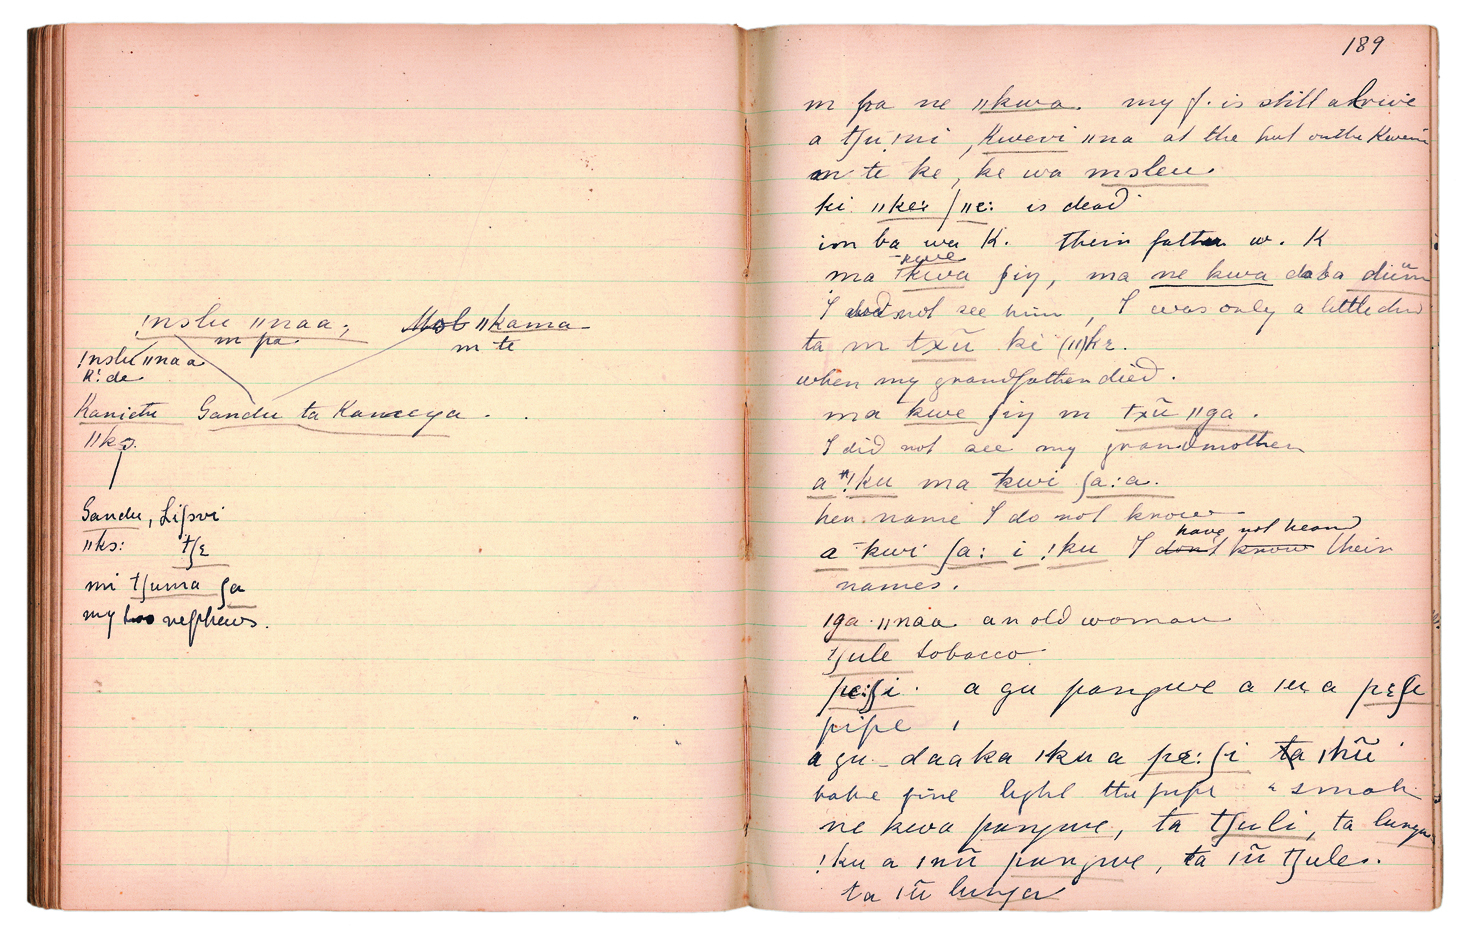 !nslu ǁnaa,
m pa
ǁkama
m te
!nslu ǁnaa
k! de
Kanietu Gandu ta Kameya.
ǁko
Gandu, Liʃovi
ǁks: tʃɛ
mi tʃuma ʃa
my two nephews.
189
m pa ne ǁkwa. my f. is still alive
a tʃu !ni, Kwevi ǁna at the hut on the Kwevi
m te ke, ke wa msleu.
ki ǁkeː / ǁɛː is dead
im ba wa K. their father w. K
kwe
ma kwa ʃiŋ, ma ne kwa daba düm
I did not see him, I was only a little
ta m txũ ki (ǁ)kɛ.
when my grandfather died.
ma kwe ʃiŋ m txũ ǁga.
I did not see my grandmother
a !ku ma kwi ʃa:a.
her name I do not know
have not heard
a kwi ʃa: i !ku I don't know their
names.
ǀga ǁnaa an old woman
tʃule tobacco
pɛ:ʃi. a gu pangwe a ǀɛ a pɛʃi
pipe
a gu daaka ǀku a pɛ:ʃi ta ǀhũ
take fire light the pipe & smoke
ne kwa pangwe, ta tʃuli, ta lunga
!ku a ǀnũ pangwe, ta ǀũ tʃule.
ta ǀũ lunga